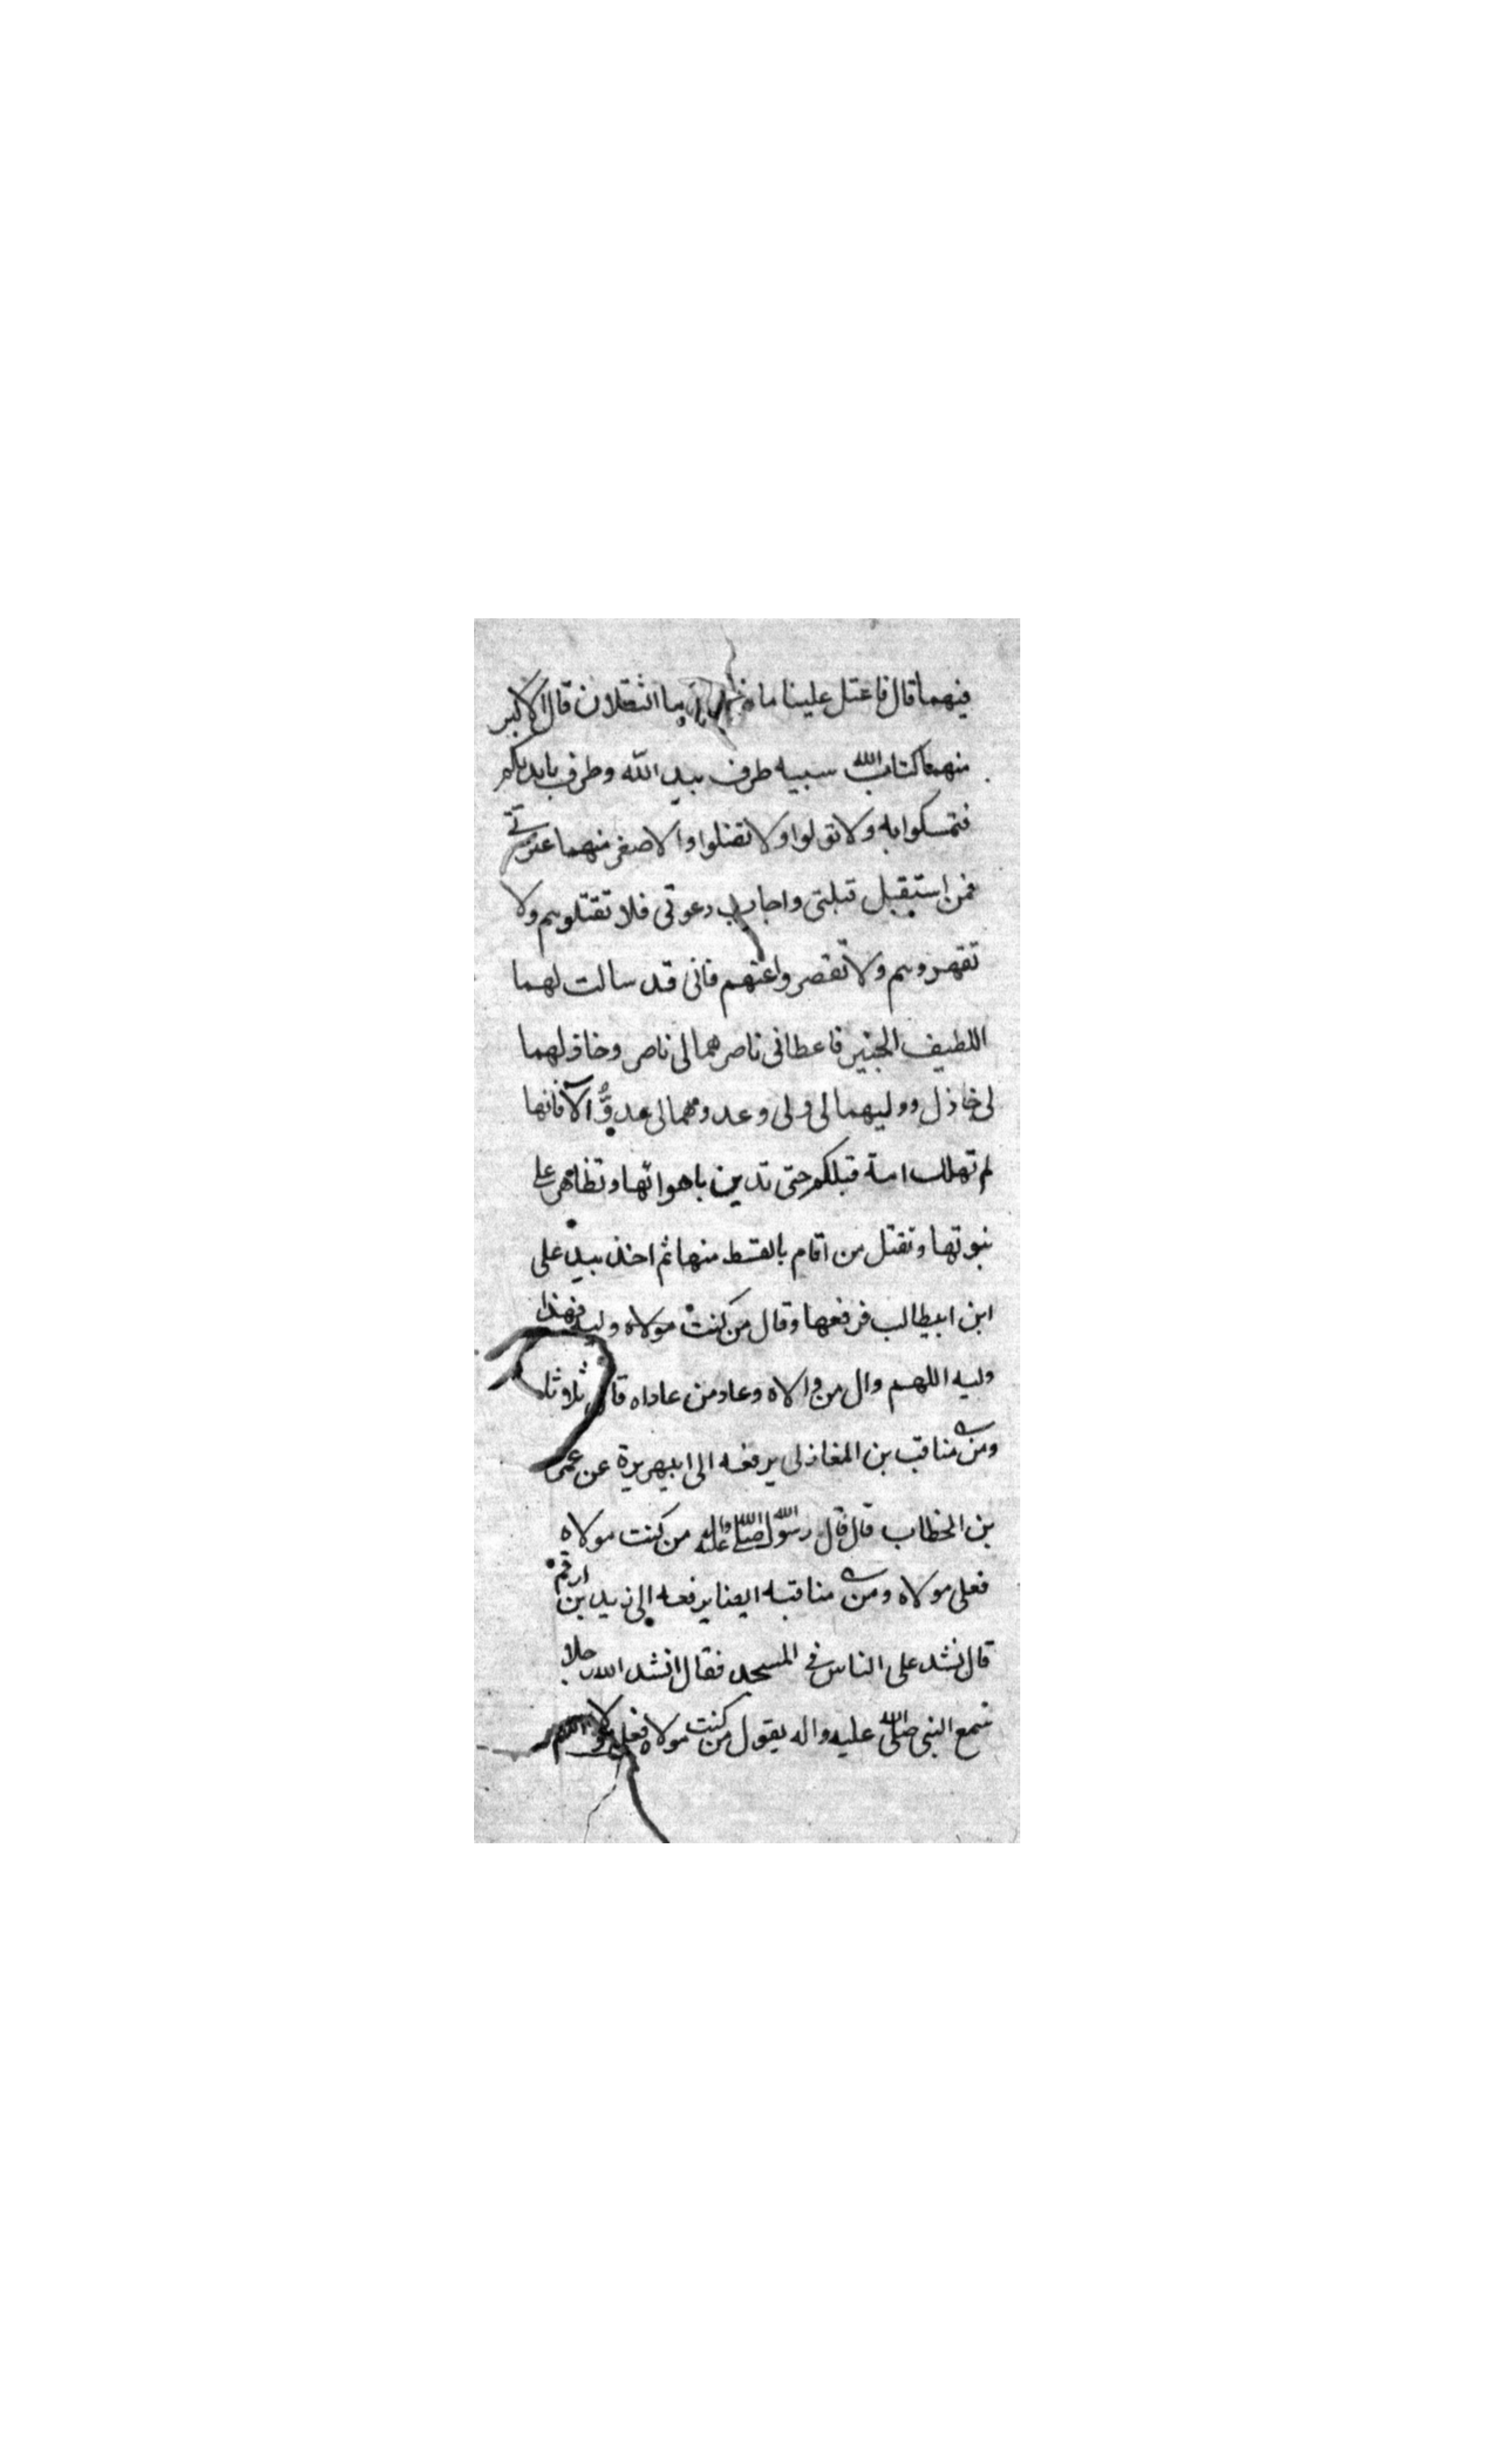 فيهما قال فاعتل علينا ما الثقلان قال الاكبر
منهما كتاب الله سببه طرف بيد الله وطرف بايديكم
فتمسكوا به ولا تولوا ولا تضلوا والا صغر منهما عترتي
فمن استقبل قبلتي واجاب دعوتي فلا تقتلوهم ولا
تقهروهم ولا تقصروا عنهم فاني قد سالت لهما
اللطيف الخبير فاعطاني ناصرهما لي ناصر وخاذلهما
لي خاذل ووليهما لي ولي وعدوهما لي عدوٌّ الا فانها
لم تهلك امة قبلكم حتى تدين باهوائها وتظاهر على
نبوتها وتقتل من اقام بالقسط منها ثم اخذ بيد على
ابن ابيطالب فرفعها وقال من كنت مولاه وليه فهذا
وليه اللهم وال من والاه وعاد من عاداه قال ثلاثا
ومن مناقب بن المغازلي يرفعه الى ابيهريرة عن عمر
بن الخطاب قال قال رسول الله صلى الله عليه واله من كنت مولاه
فعلى مولاه ومن مناقبه ايضا يرفعه الى زيد بن ارقم
قال نشد على الناس في المسجد فقال انشد الله رجلا
سمع النبي صلى الله عليه واله يقول من كنت مولاه فعلى مولاه اللهم